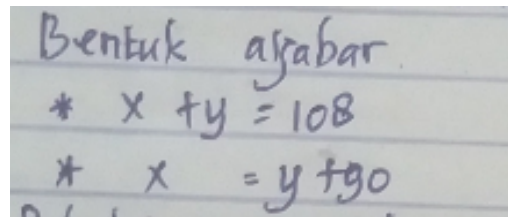 Bentuk aljabar
* x + y = 108
* x = y + 90